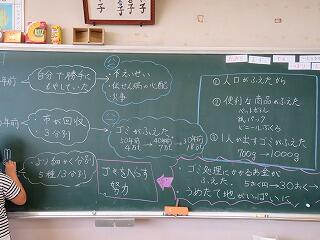 年前
自分で勝手に
もやしていた
不えいせい
伝せん病の心配
火事
年前
市が回収
3分別
ゴミがふえた
50年前
40年前
30年前
より細かく分別
5種13分別
ゴミをへらす
努力
①人口がふえたから
②便利な商品がふえた
ペットボトル
紙パック
ビニールぶくろ
③1人が出すゴミがふえた
700g→1000g
・ゴミ処理にかかるお金が
ふえた。5おく円→30おく
・うめたて地がいっぱいに